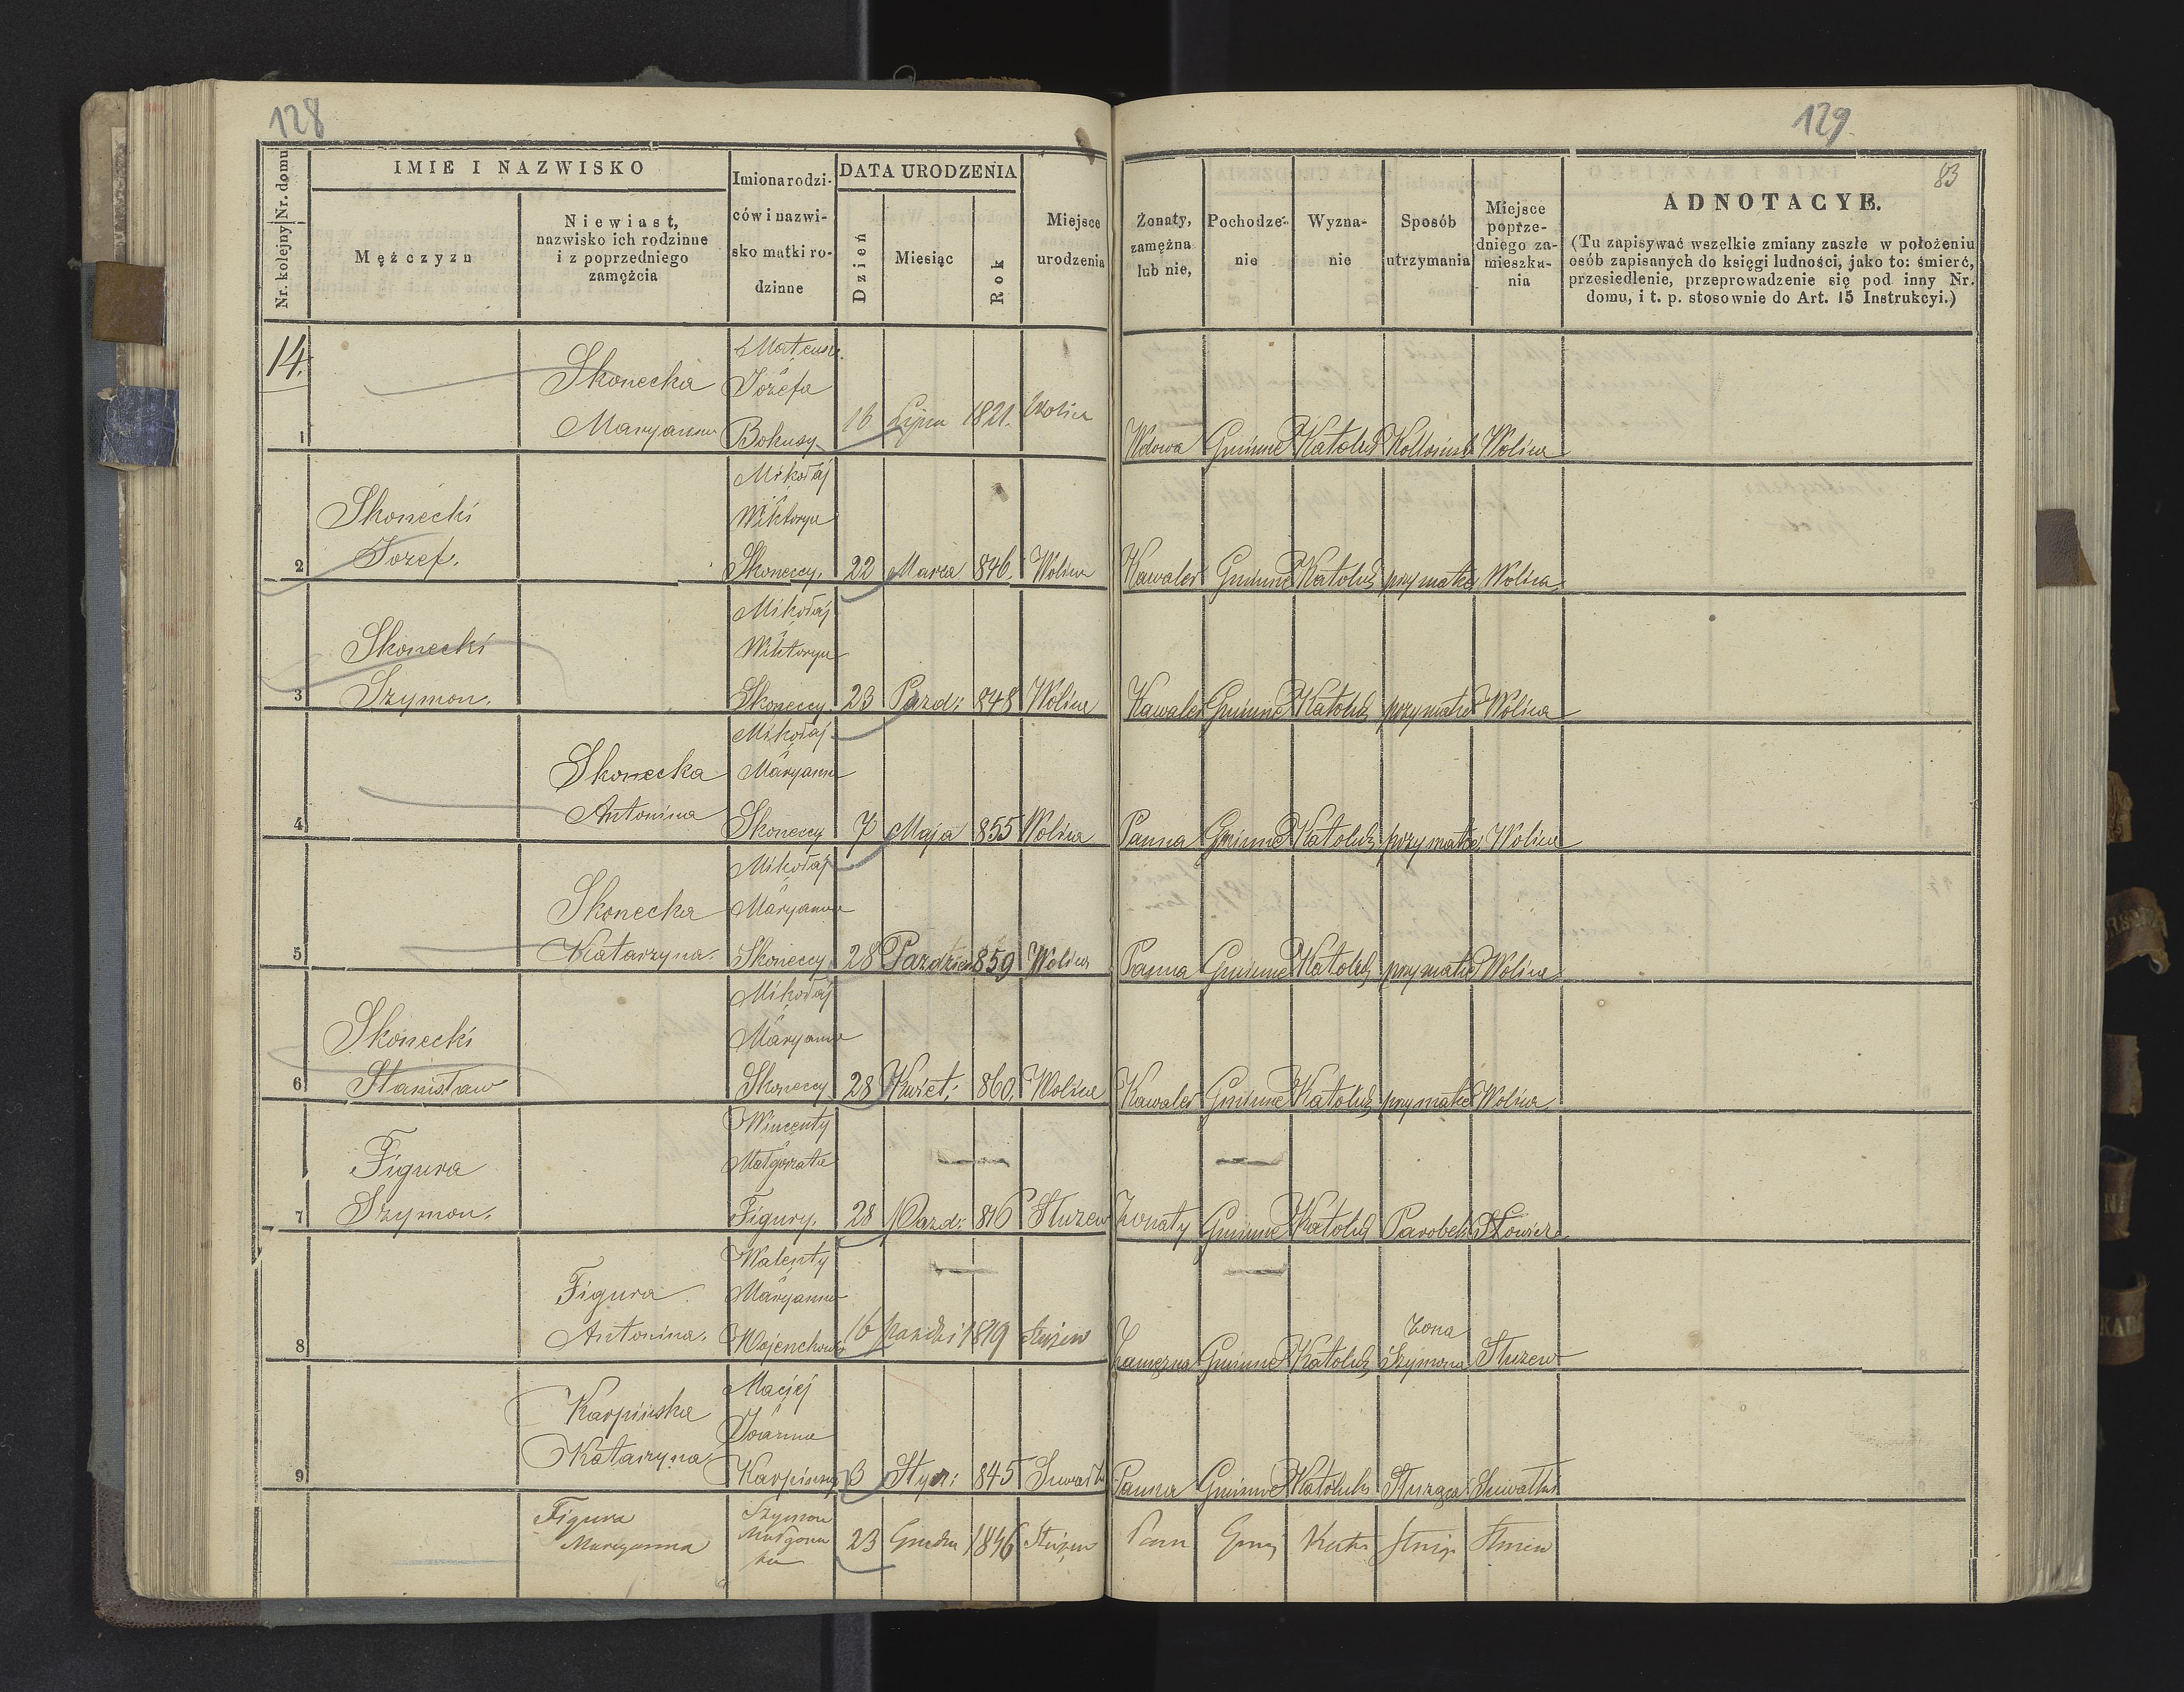 128
129
83
Nr. kolejny Nr. domu
IMIE I NAZWISKO
Mężczyzn
Niewiast,
nazwisko ich rodzinne
i z poprzedniego
zamężcia
Imiona rodzi-
ców i nazwi-
sko matki ro-
dzinne
DATA URODZENIA
Dzień
Miesiąc
Rok
Miejsce
urodzenia
Żonaty,
zamężna
lub nie,
Pochodze-
nie
Wyzna-
nie
Sposób
utrzymania
Miejsce
poprze-
dniego za-
mieszka-
nia
ADNOTACYE.
(Tu zapisywać wszelkie zmiany zaszłe w położeniu
osób zapisanych do księgi ludności, jako to: śmierć,
przesiedlenie, przeprowadzenie się pod inny Nr.
domu, i t. p. stosownie do Art. 15 Instrukcyi.)
14.
1
Skonecka
Maryanna
Mateusz
Józefa
Bokusy
16 Lipca 1821. Wolica
Wdowa Gminne Katolic Wolica
2
Skonecki
Jozef.
Mikołaj
Wiktorya
Skoneccy.
22 Marca 846. Wolica
Kawaler Gminne Katolic przy matce Wolica
3
Skonecki
Szymon.
Mikołaj
Wiktorya
Skoneccy.
23 Pazd: 848 Wolica
Kawaler Gminne Katolic przy matce Wolica
4
Skonecka
Antonina
Mikołaj
Maryanna
Skoneccy
7 Maja 855 Wolica
Panna Gminne Katolic przy matce Wolica
5
Skonecka
Katarzyna.
Mikołaj
Maryanna
Skoneccy
28 Pazdzier 859 Wolica
Panna Gminne Katolic przy matce Wolica
6
Skonecki
Stanisław
Mikołaj
Maryanna
Skoneccy
28 Kwiet. 860. Wolica
Kawaler Gminne Katolic przy matce Wolica.
7
Figura
Szymon.
Wincenty
Małgorzata
Figury.
28 Pazd: 816 Służew
Żonaty Gminne Katolic Parobek
8
Figura
Antonina.
Walenty
Maryanna
16 1819 Służew
Zamęzna Gminne Katolic Żona
Szymona Służew
9
Karpińska
Katarzyna
Maciej
Joanna
Karpińscy
3 Stycz: 845
Panna Gminne Katolicka Służąca
Figura
Maryanna
Szymon
23 Grudnia 1846 Służew
Pann